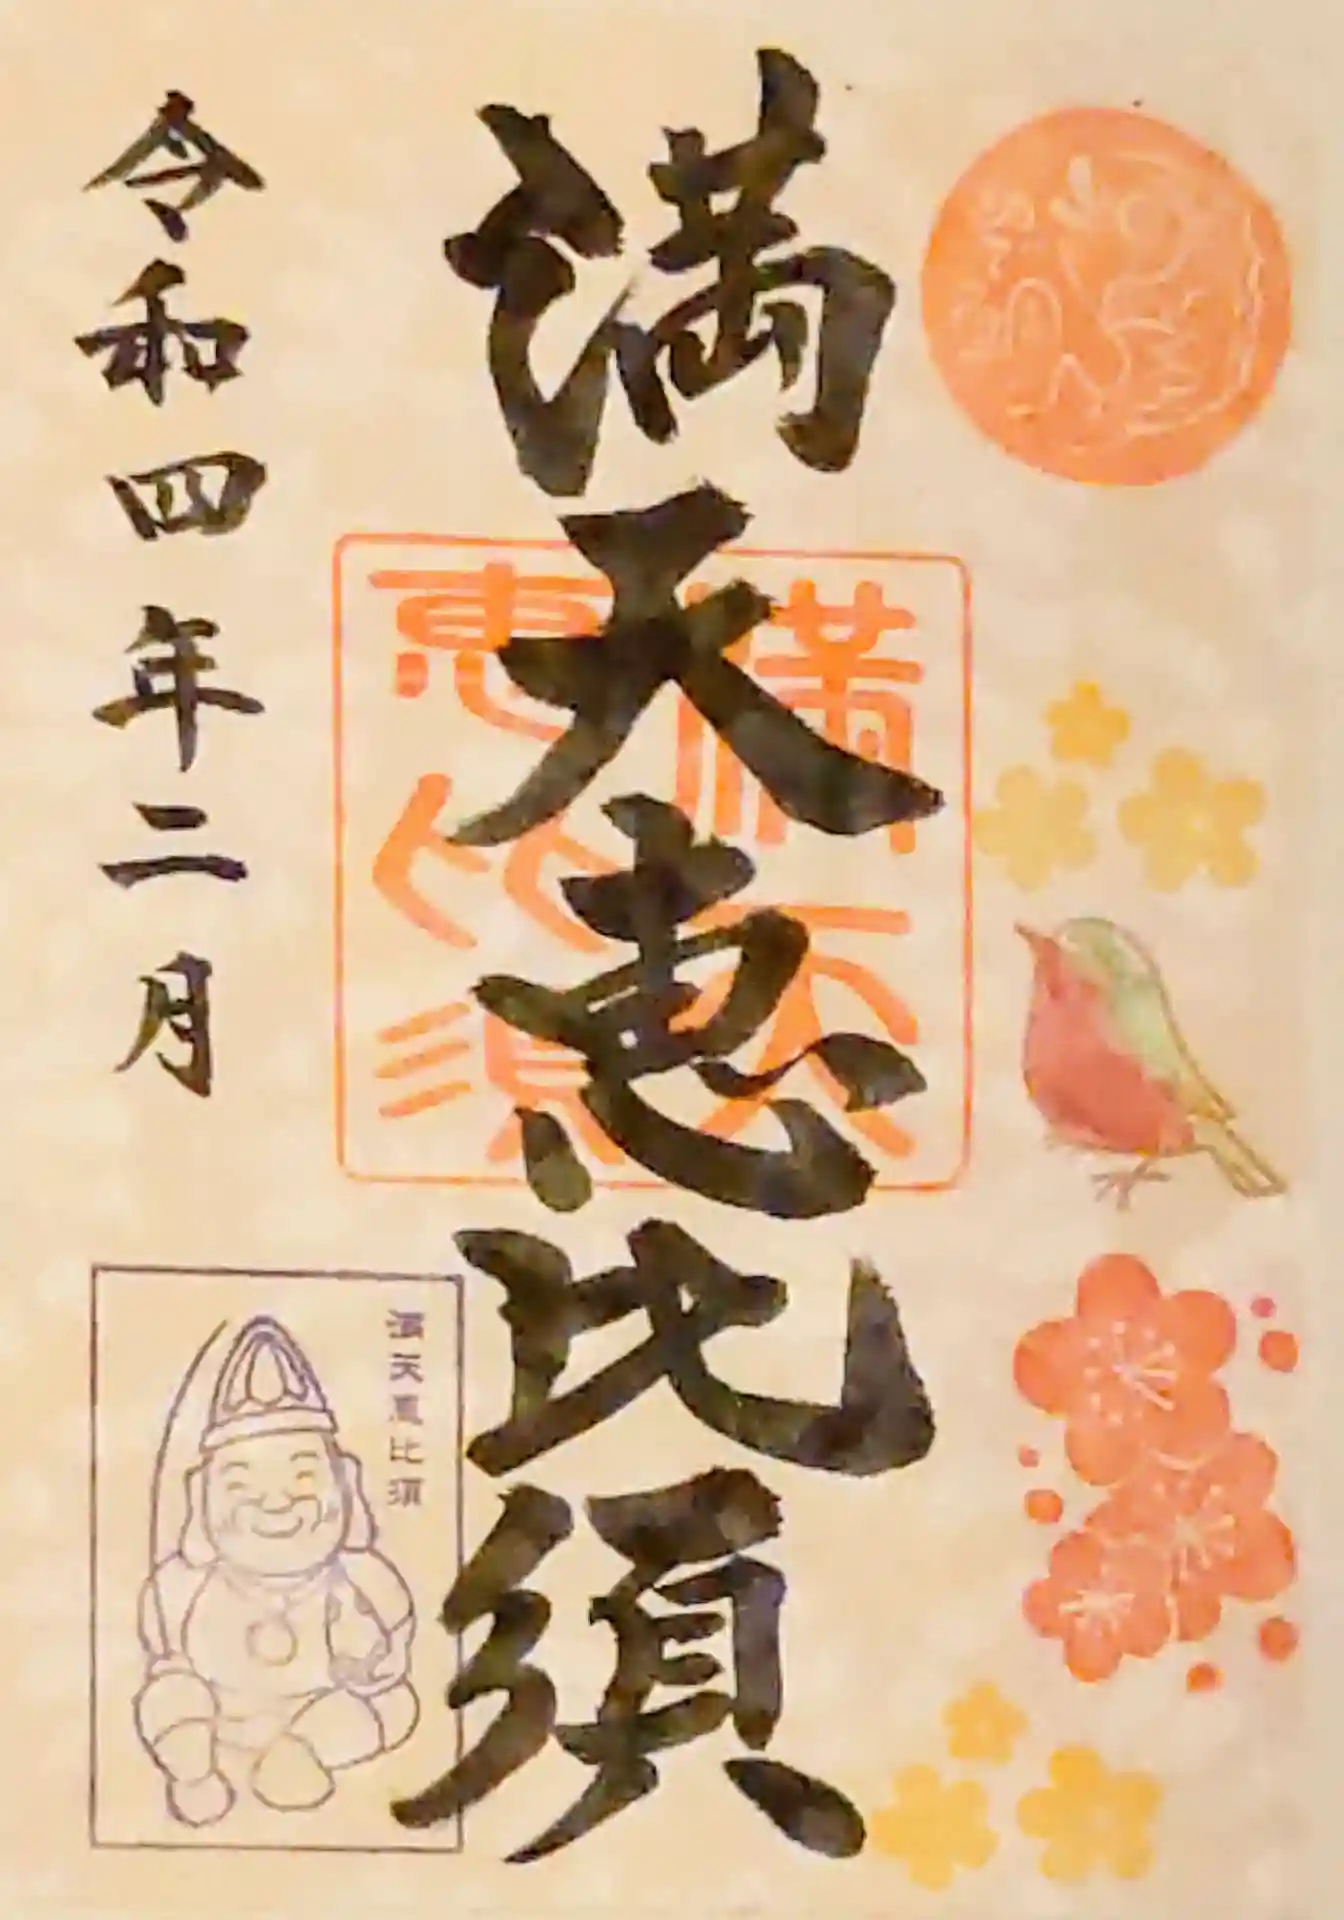 満天恵比須
満天
恵比須
令和四年二月
満天恵比須